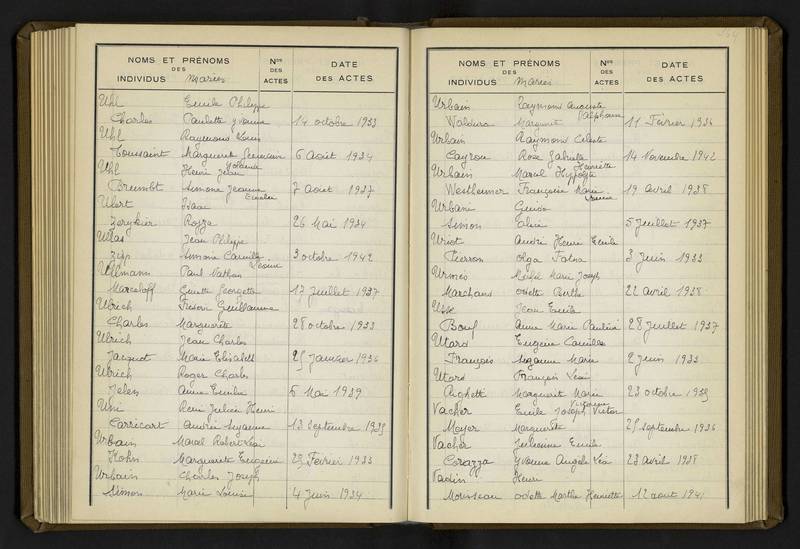 NOMS ET PRÉNOMS
DES
INDIVIDUS Mariés
Nos
DES
ACTES
DATE
DES ACTES
Uhl Emile Philippe
Charles Paulette Yvonne 14 octobre 1933
Uhl Raymond Louis
Toussaint Marguerite Germaine 6 Août 1934
Yolande
Uhl Henri Jean
Brumbt Simone Jeanne 7 août 1937
Ulert Isaac
Rojza 26 Mai 1934
Ullas Jean Philippe
Zipp Simone Camille 3 octobre 1942
Ullmann Paul Nathan
Marceloff Ginette Georgette 17 Juillet 1937
Ulrich Guillaume
Charles Marguerite 28 octobre 1933
Ulrich Jean Charles
Jacquot Marie Elisabeth 25 Janvier 1936
Ulrich Roger Charles
Jelen Anne Emilie 6 Mai 1939
René Julien Henri
Carricart Andrée Suzanne 13 Septembre 1935
Urbain Marcel Robert Léon
Kohn Marguerite Eugénie 23 Février 1933
Urbain Charles Joseph
Simon Marie Louise 4 Juin 1934
NOMS ET PRÉNOMS
DES
INDIVIDUS Mariés
Nos
DES
ACTES
DATE
DES ACTES
Urbain Raymond Auguste
Alphonse
Waldura Marguerite 11 Février 1936
Urbain Raymond Celeste
Cayrou Rose Gabrielle 14 Novembre 1942
Henriette
Urbain Marcel Hippolyte
Westheimer Françoise Marie 19 avril 1938
Urbani Guido
Simon 5 Juillet 1937
Uriot André Henri Emile
Pierron Olga 3 Juin 1933
Urmès Michel Marie Joseph
Marchand Odette Berthe 22 avril 1938
Usse Jean Emile
Bouf Anne Marie Pauline 28 Juillet 1937
Utard Eugène Camille
François Suzanne Marie 2 Juin 1933
Utard François Léon
Righetti Marguerite Marie 23 octobre 1935
Victorine
Vacher Emile Joseph Victor
Meyer Marguerite 25 Septembre 1936
Vacher Julienne Emile
Corazza Yvonne Angèle Léa 23 avril 1938
Vadin Henri
Mousseau Odette Marthe Henriette 12 aout 1941